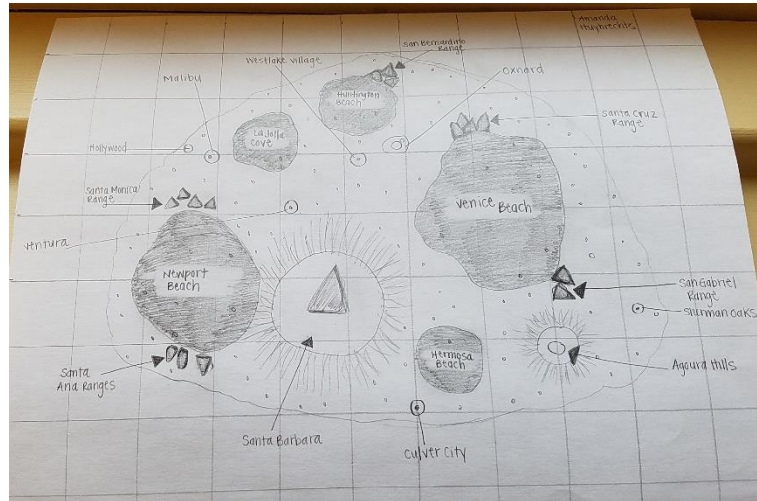 Amanda
Huybrechts
San Bernardino
Range
Westlake Village
Malibu
Oxnard
Huntington
Beach
Santa Cruz
Range
La Jolla
Cove
Hollywood
Santa Monica
Range
Venice Beach
Ventura
Newport
Beach
San Gabriel
Range
Sherman Oaks
Hermosa
Beach
Agoura Hills
Santa
Ana Ranges
Santa Barbara
Culver City